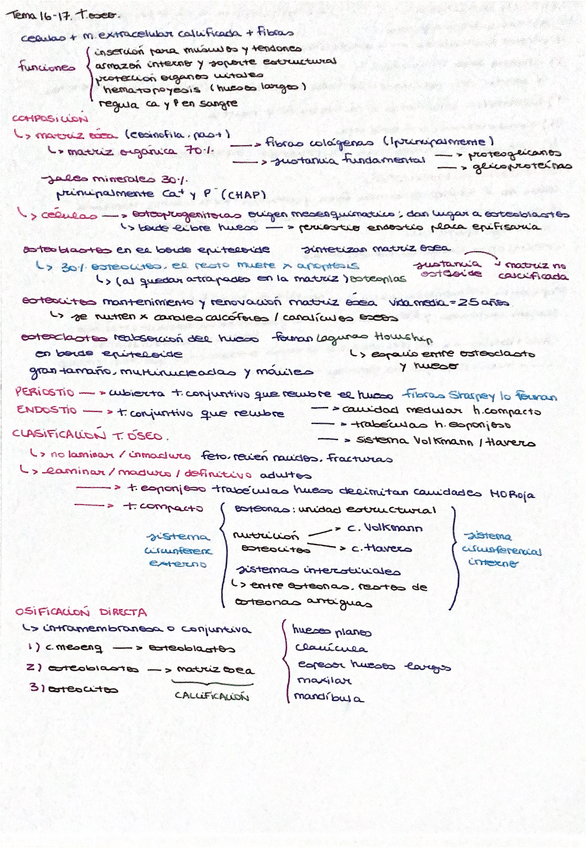 Tema 16-17. T. oseo.
celulas + m. extracelular calcificada + fibras
funciones
inserción para músculos y tendones
armazón interno y soporte estructural
protección organos vitales
hematopoyesis (huesos largos)
regula Ca y P en sangre
COMPOSICIÓN
↳ matriz ósea (eosinofila, pas+)
↳ matriz organica 70% → fibras colágenas (I principalmente)
→ sustancia fundamental → proteoglicanos
→ glicoproteínas
sales minerales 30%
principalmente Ca+ y P- (CHAP)
↳ células → osteoprogenitoras origen mesenquimatico; dan lugar a osteoblastos
↳ borde libre hueso → periostio endostio placa epifisaria
osteoblastos en el borde epitelioide sintetizan matriz osea
↳ 30% osteocitos, el resto muere x apoptosis
sustancia osteoide → matriz no calcificada
↳ (al quedar atrapados en la matriz) osteoplas
osteocitos mantenimiento y renovación matriz ósea vida media = 25 años.
↳ se nutren x canales calcóforos / canalículos óseos
osteoclastos reabsorción del hueso forman lagunas Howship
en borde epitelioide ↳ espacio entre osteoclasto y hueso
gran tamaño, multinucleadas y móviles
PERIOSTIO → cubierta t. conjuntivo que recubre el hueso fibras Sharpey lo forman
ENDOSTIO → t. conjuntivo que recubre → cavidad medular h. compacto
→ trabeculas h. esponjoso
→ sistema Volkmann / Havers
CLASIFICACIÓN T. ÓSEO.
↳ no laminar / inmaduro feto, recién nacidos, fracturas
↳ laminar / maduro / definitivo adultos
→ t. esponjoso trabéculas hueso delimitan cavidades MO Roja
→ t. compacto
sistema circunferenc externo
osteonas: unidad estructural
nutrición osteocitos → c. Volkmann
→ c. Havers
sistemas intersticiales
↳ entre osteonas, restos de
osteonas antiguas
sistema circunferencial interno
OSIFICACIÓN DIRECTA
↳ intramembranosa o conjuntiva
1) c. meseng → osteoblastos
2) osteoblastos → matriz osea
3) osteocitos
CALCIFICACIÓN
huesos planos
clavícula
espesor huesos largos
maxilar
mandíbula